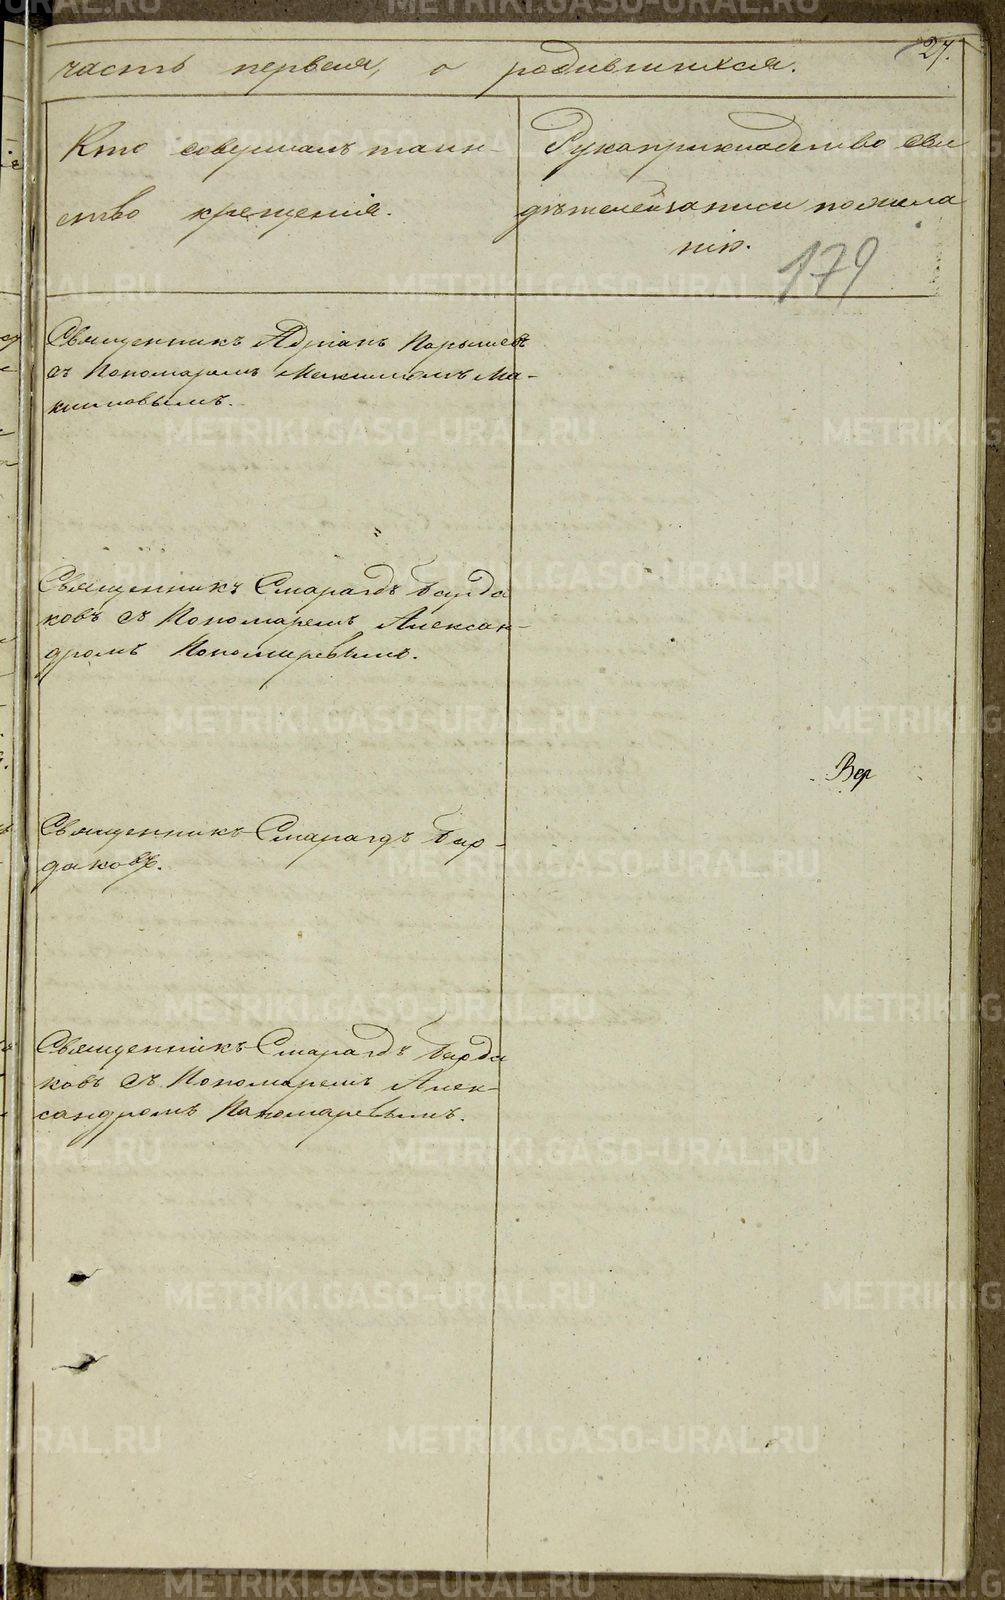 27.
часть первая, о родившихся.
Кто совершалъ таин-
ство крещенія.
Рукоприкладство сви
дѣтелей записи по жела
нію.
179
Священникъ Адріанъ
съ Пономаремъ Максимомъ Ма-
кимовымъ.
Священникъ Смарагдъ Барда
ковъ съ Пономаремъ Алексан-
дромъ Пономаревымъ.
Вер
Священникъ Смарагдъ Бар-
даковъ.
Священникъ Смарагдъ Барда
ковъ съ Пономаремъ Алек-
сандромъ Пономаревымъ.
METRIKI.GASO-URAL.RU